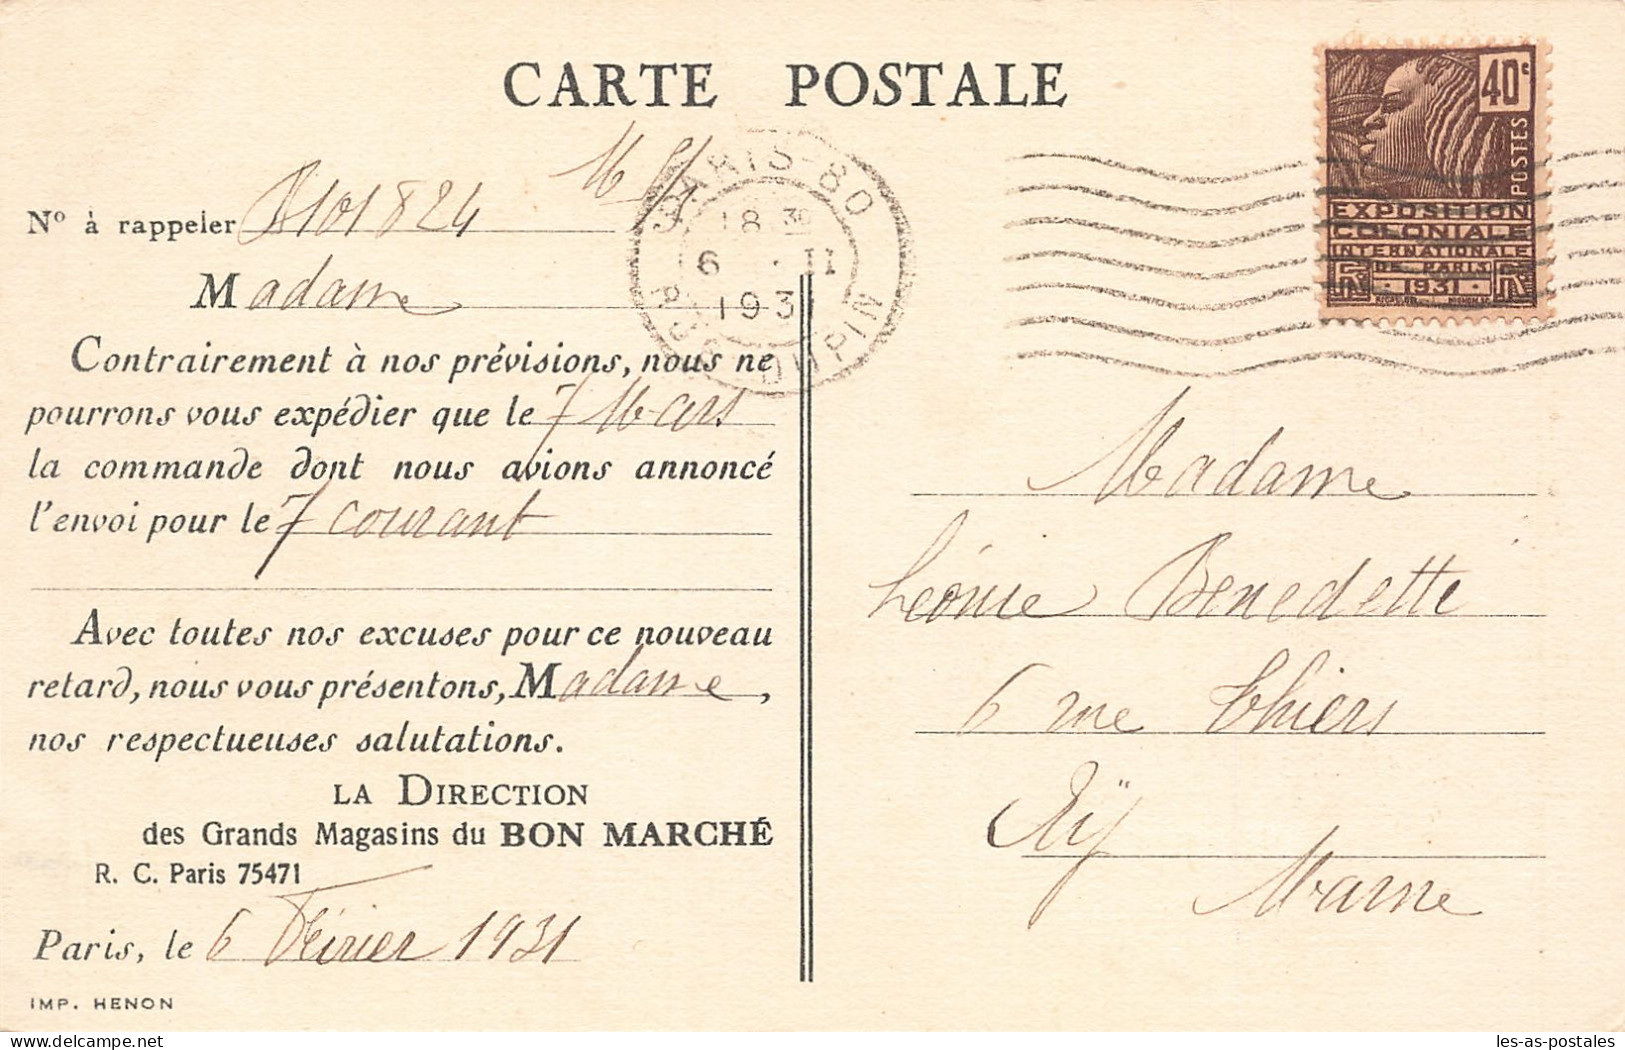 CARTE POSTALE
40c
POSTES
EXPOSITION
COLONIALE
INTERNATIONALE
DE PARIS
1931
PARIS-80
18 30
6 II
1931
R. DUPIN
No à rappeler 101824
Madame
Contrairement à nos prévisions, nous ne
pourrons vous expédier que le 7 Mars
la commande dont nous avions annoncé
l'envoi pour le 7 courant
Avec toutes nos excuses pour ce nouveau
retard, nous vous présentons, Madame,
nos respectueuses salutations.
LA DIRECTION
des Grands Magasins du BON MARCHÉ
R. C. Paris 75471
Paris, le 6 Février 1931
IMP. HENON
Madame
Léonie Benedetti
6 rue Thiers
Aÿ
Marne
les-as-postales